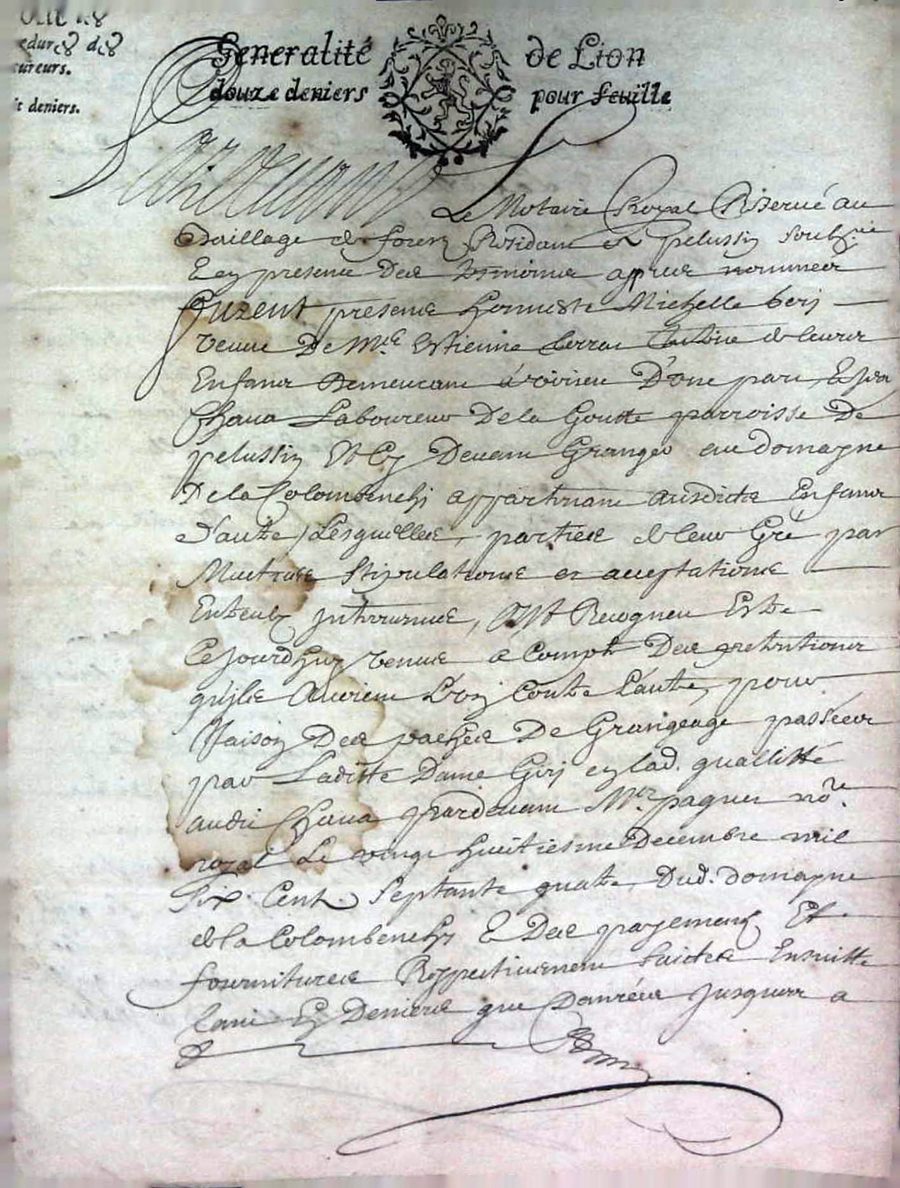 edures de
cureurs.
it deniers.
Generalité de Lion
douze deniers pour feuille
Le Notaire Royal Reservé au
Baillage de forest Residant a pelussin soubsné
Et en presence des tesmoins apres nommes
furent presents honneste Michelle
venue De Me Estienne tutrice de leurs
Enfans Demeurant a virieu D'une part, Et
Chana Laboureur De la Goutte parroisse De
pelussin Et Cy Devant Granger au domayne
De la Colombenchy appartenant ausdicts Enfans
D'autre, Lesquelles parties de leur Gré par
Mutuelles stipulations et acceptations
Entreulx Intervenues, Ont Recogneu Estre
Cejourdhuy venus a Compte Des pretentions
quils Avoient L'un Contre L'autre, pour
Raison Des paches De Grangeage passées
par Laditte Dame en lad. quallitté
audit Chana pardevant Me pagues nore.
royal Le vingt huictiesme Decembre mil
Six Cent Septante quatre, Dud. domayne
de la Colombenchy & Des payements Et
fournitures Respectivement faictes Ensuitte
tant En Deniers que Danrées Jusques a